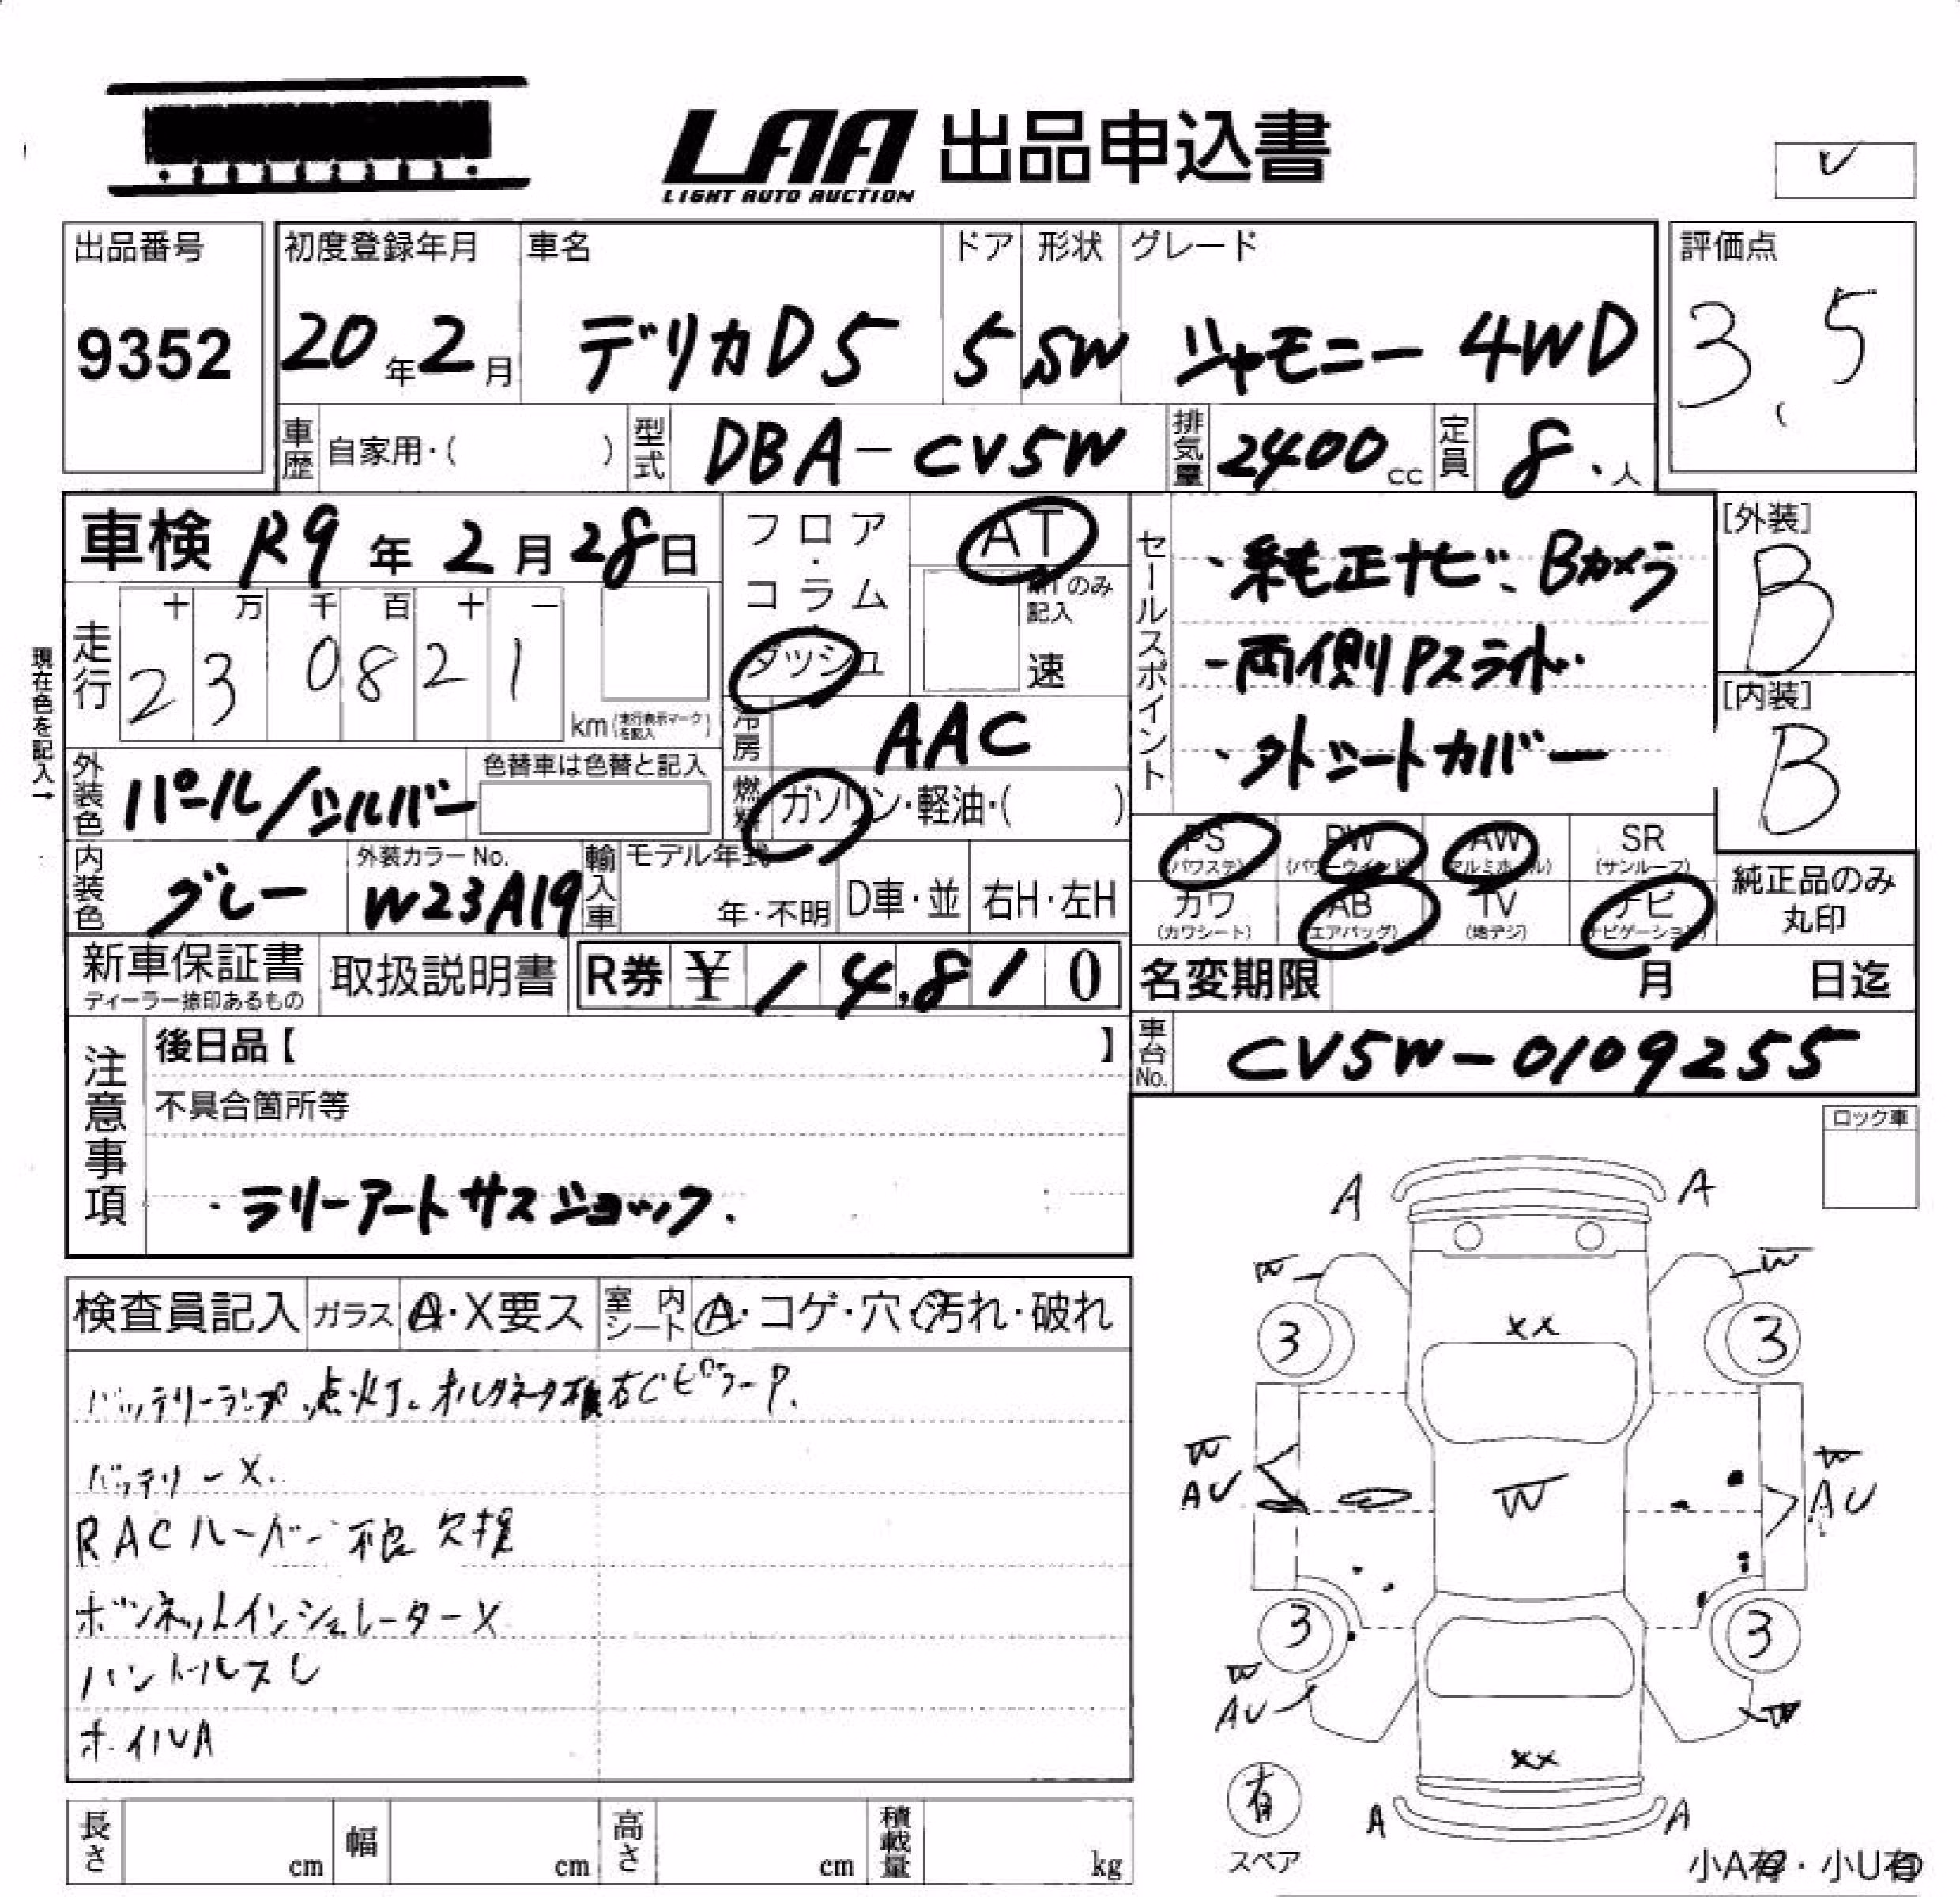 LAA 出品申込書
LIGHT AUTO AUCTION
出品番号 初度登録年月 車名 ドア 形状 グレード 評価点
9352 20年2月 デリカD5 5 SW ジャモニー 4WD 3.5
車歴 自家用・( ) 型式 DBA-CV5W 排気量 2400cc 定員 8人
車検 R9年2月28日
フロア・コラム ダッシュ
AT
MTのみ記入
速
走行 十 万 千 百 十 一
230821 km (走行表示マークを記入)
現在色を記入→
外装色 パール/シルバー 色替車は色替と記入
冷房 AAC
燃料 ガソリン・軽油・( )
内装色 グレー 外装カラーNo. W23A19 輸入車 モデル年式 年・不明 D車・並 右H・左H
セールスポイント
・純正ナビ、Bカメラ
-両側Pスライド
[外装]
B
[内装]
B
PS (パワステ) PW (パワーウインド) AW (アルミホイール) SR (サンルーフ)
カワ (カワシート) AB (エアバッグ) TV (地デジ) ナビ (ナビゲーション)
純正品のみ丸印
新車保証書 ディーラー捺印あるもの 取扱説明書 R券 ¥14,810
名変期限 月 日迄
車台No. CV5W-0109255
注意事項
後日品【 】
不具合箇所等
・ラリーアートサスショック.
ロック車
検査員記入 ガラス A・X要ス 室内シート A・コゲ・穴・汚れ・破れ
バッテリーランプ点灯、オルタネータ 右CピラーP.
バッテリーX.
RACルーバー 欠損
ボンネットインシュレーターX
ハンドルスレ
ホイルA
A A
W W
XX
3 3
W W
AU AU
W
3 3
W W
AU
XX
A A
有
スペア
小A有・小U有
長さ cm 幅 cm 高さ cm 積載量 kg